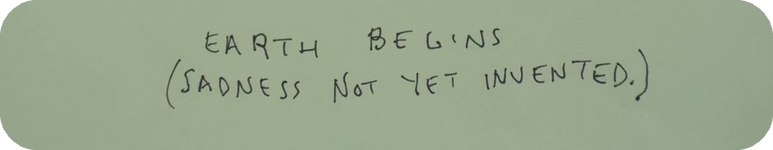 EARTH BEGINS
(SADNESS NOT YET INVENTED.)